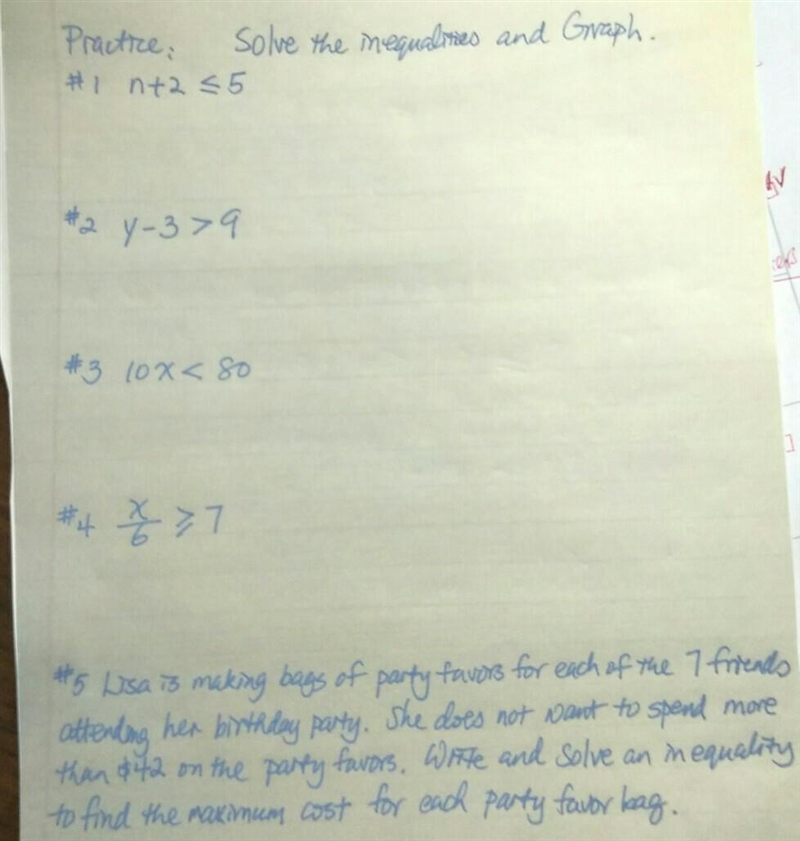 Practice: Solve the inequalities and Graph.
#1 n+2 ≤ 5
#2 y-3 > 9
#3 10x < 80
#4 x/6 ≥ 7
#5 Lisa is making bags of party favors for each of the 7 friends
attending her birthday party. She does not want to spend more
than $42 on the party favors. Write and solve an inequality
to find the maximum cost for each party favor bag.